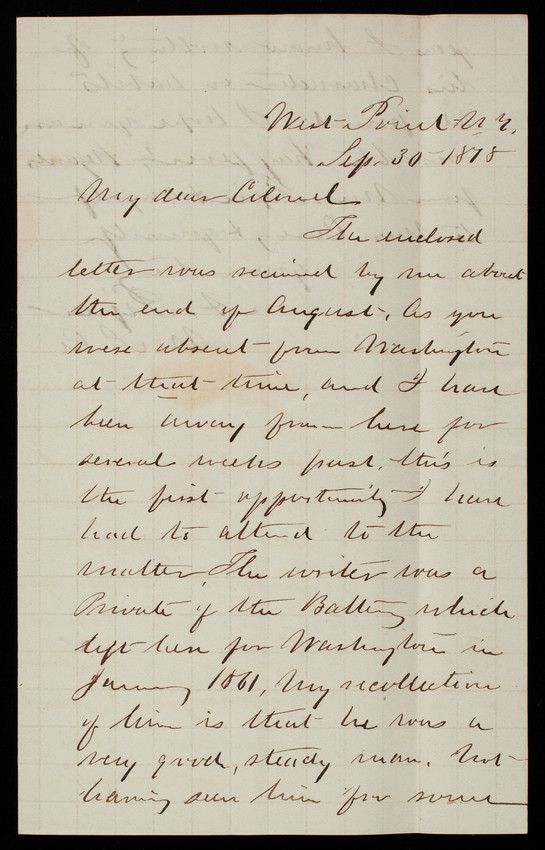 West Point N.Y.
Sep. 30 1878
My dear Colonel
The enclosed
letter was received by me about
the end of August. As you
were absent from Washington
at that time, and I have
been away from here for
several weeks past, this is
the first opportunity I have
had to attend to the
matter. The writer was a
Private of the Battery which
left here for Washington in
January 1861, My recollection
of him is that he was a
very good, steady man. Not
having seen him for some